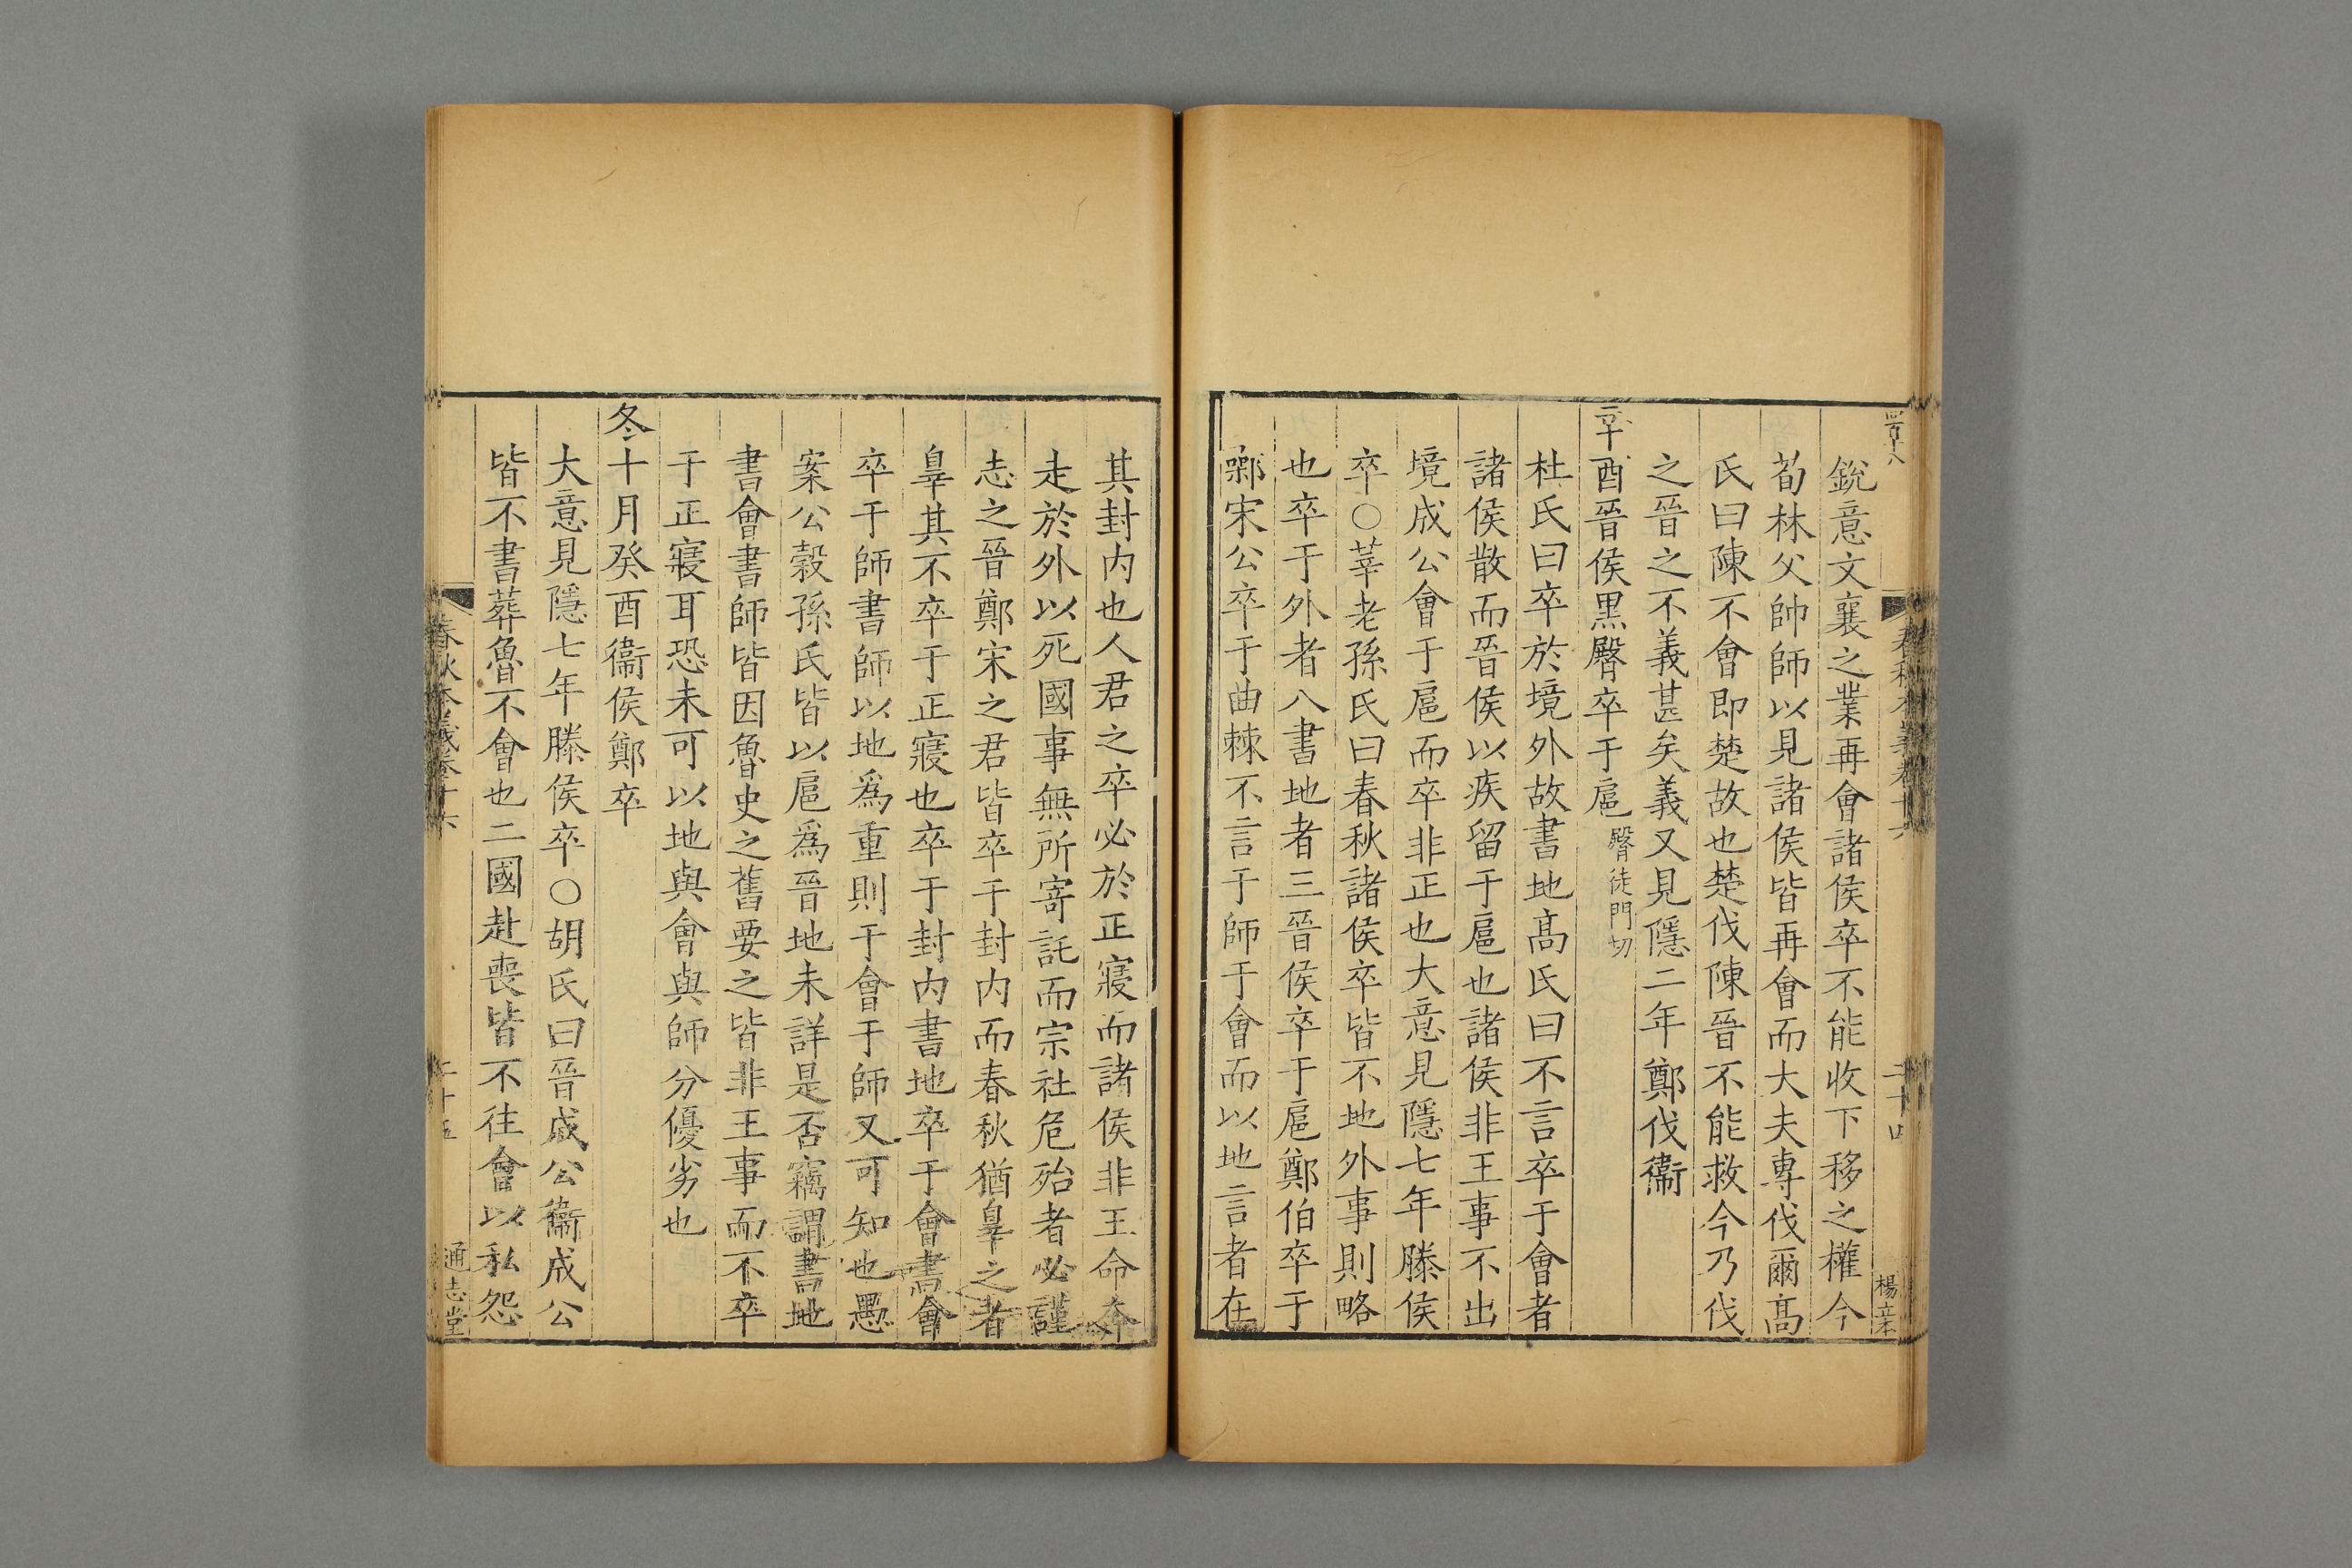 銳意文襄之業再會諸侯卒不能收下移之權今
荀林父帥師以見諸侯皆再會而大夫專伐爾髙
氏曰陳不會即楚故也楚伐陳晉不能救今乃伐
之晉之不義甚矣義又見隱二年鄭伐衞
酉晉侯黒臀卒于扈臀徒門切
杜氏曰卒於境外故書地髙氏曰不言卒于會者
諸侯散而晉侯以疾留于扈也諸侯非王事不出
境成公會于扈而卒非正也大意見隱七年滕侯
卒○莘老孫氏曰春秋諸侯卒皆不地外事則略
也卒于外者八書地者三晉侯卒于扈鄭伯卒于
鄵宋公卒于曲棘不言于師于會而以地言者在
其封内也人君之卒必於正寢而諸侯非王命奔
走於外以死國事無所寄託而宗社危殆者必謹
志之晉鄭宋之君皆卒于封内而春秋猶辠之者
辠其不卒于正寢也卒于封内書地卒于會書會
卒于師書師以地爲重則于會于師又可知也愚
案公榖孫氏皆以扈爲晉地未詳是否竊謂書地
書會書師皆因魯史之舊要之皆非王事而不卒
于正寢耳恐未可以地與會與師分優劣也
冬十月癸酉衞侯鄭卒
大意見隱七年滕侯卒○胡氏曰晉成公衞成公
皆不書葬魯不會也二國赴喪皆不往會以私怨
春秋本義卷十六
通志堂